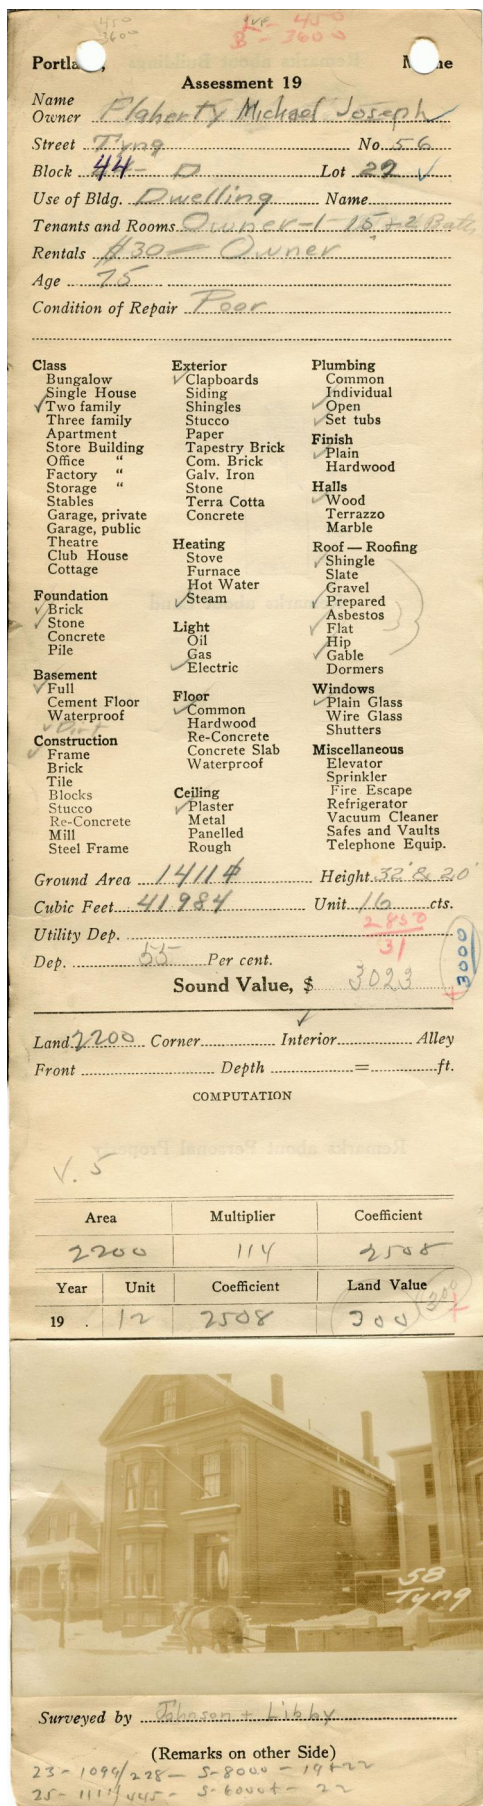 450
3600
L - 450
B - 3600
Portland, Maine
Assessment 19
Name
Owner Flaherty Michael Joseph
Street Tyng No. 56
Block 44- D Lot 22
Use of Bldg. Dwelling Name
Tenants and Rooms Owner-1-15 & 2 Bath
Rentals $30 — Owner
Age 75
Condition of Repair Poor
Class
Bungalow
Single House
Two family
Three family
Apartment
Store Building
Office "
Factory "
Storage "
Stables
Garage, private
Garage, public
Theatre
Club House
Cottage
Foundation
Brick
Stone
Concrete
Pile
Basement
Full
Cement Floor
Waterproof
Dirt
Construction
Frame
Brick
Tile
Blocks
Stucco
Re-Concrete
Mill
Steel Frame
Exterior
Clapboards
Siding
Shingles
Stucco
Paper
Tapestry Brick
Com. Brick
Galv. Iron
Stone
Terra Cotta
Concrete
Heating
Stove
Furnace
Hot Water
Steam
Light
Oil
Gas
Electric
Floor
Common
Hardwood
Re-Concrete
Concrete Slab
Waterproof
Ceiling
Plaster
Metal
Panelled
Rough
Plumbing
Common
Individual
Open
Set tubs
Finish
Plain
Hardwood
Halls
Wood
Terrazzo
Marble
Roof — Roofing
Shingle
Slate
Gravel
Prepared
Asbestos
Flat
Hip
Gable
Dormers
Windows
Plain Glass
Wire Glass
Shutters
Miscellaneous
Elevator
Sprinkler
Fire Escape
Refrigerator
Vacuum Cleaner
Safes and Vaults
Telephone Equip.
Ground Area 1411 Height 32' & 20'
Cubic Feet 41984 Unit 16 cts.
Utility Dep. 2850
31
Dep. 55 Per cent.
3000
Sound Value, $ 3023
Land 2200 Corner Interior Alley
Front Depth = ft.
COMPUTATION
V. 5
Area Multiplier Coefficient
2200 114 2508
Year Unit Coefficient Land Value
19 . 12 2508 300 300
58
Tyng
Surveyed by Johnson + Libby
(Remarks on other Side)
23 - 1099/228 - S-8000 - 19+22
25 - 1111/445 - S-6000+ - 22